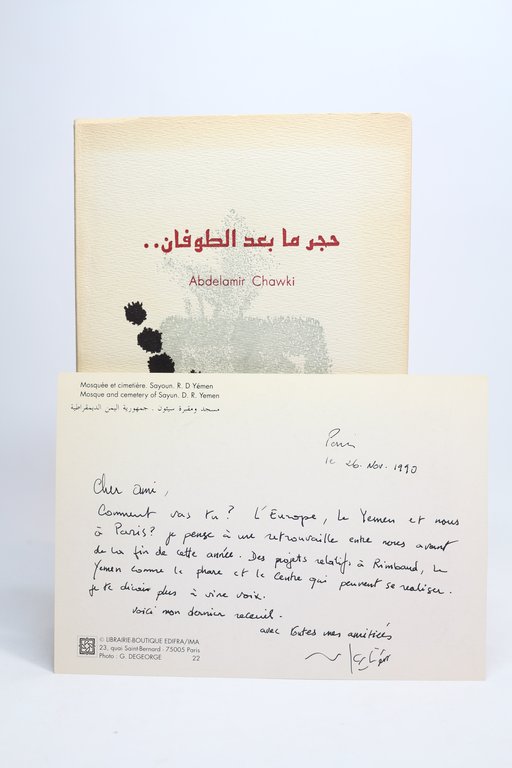 حجر ما بعد الطوفان..
Abdelamir Chawki
Mosquée et cimetière. Sayoun. R. D Yémen
Mosque and cemetery of Sayun. D. R. Yemen
مسجد ومقبرة سيئون . جمهورية اليمن الديمقراطية
Paris
le 26. Nov. 1990
Cher ami,
Comment vas tu? L'Europe, le Yemen et nous
à Paris? je pense à une retrouvaille entre nous avant
de la fin de cette année. Des projets relatifs à Rimbaud, le
Yemen comme le phare et le centre qui peuvent se realiser.
je te dirais plus à vive voix.
voici mon dernier receuil.
avec toutes mes amitiés
© LIBRAIRIE-BOUTIQUE EDIFRA/IMA
23, quai Saint-Bernard - 75005 Paris
Photo : G. DEGEORGE 22